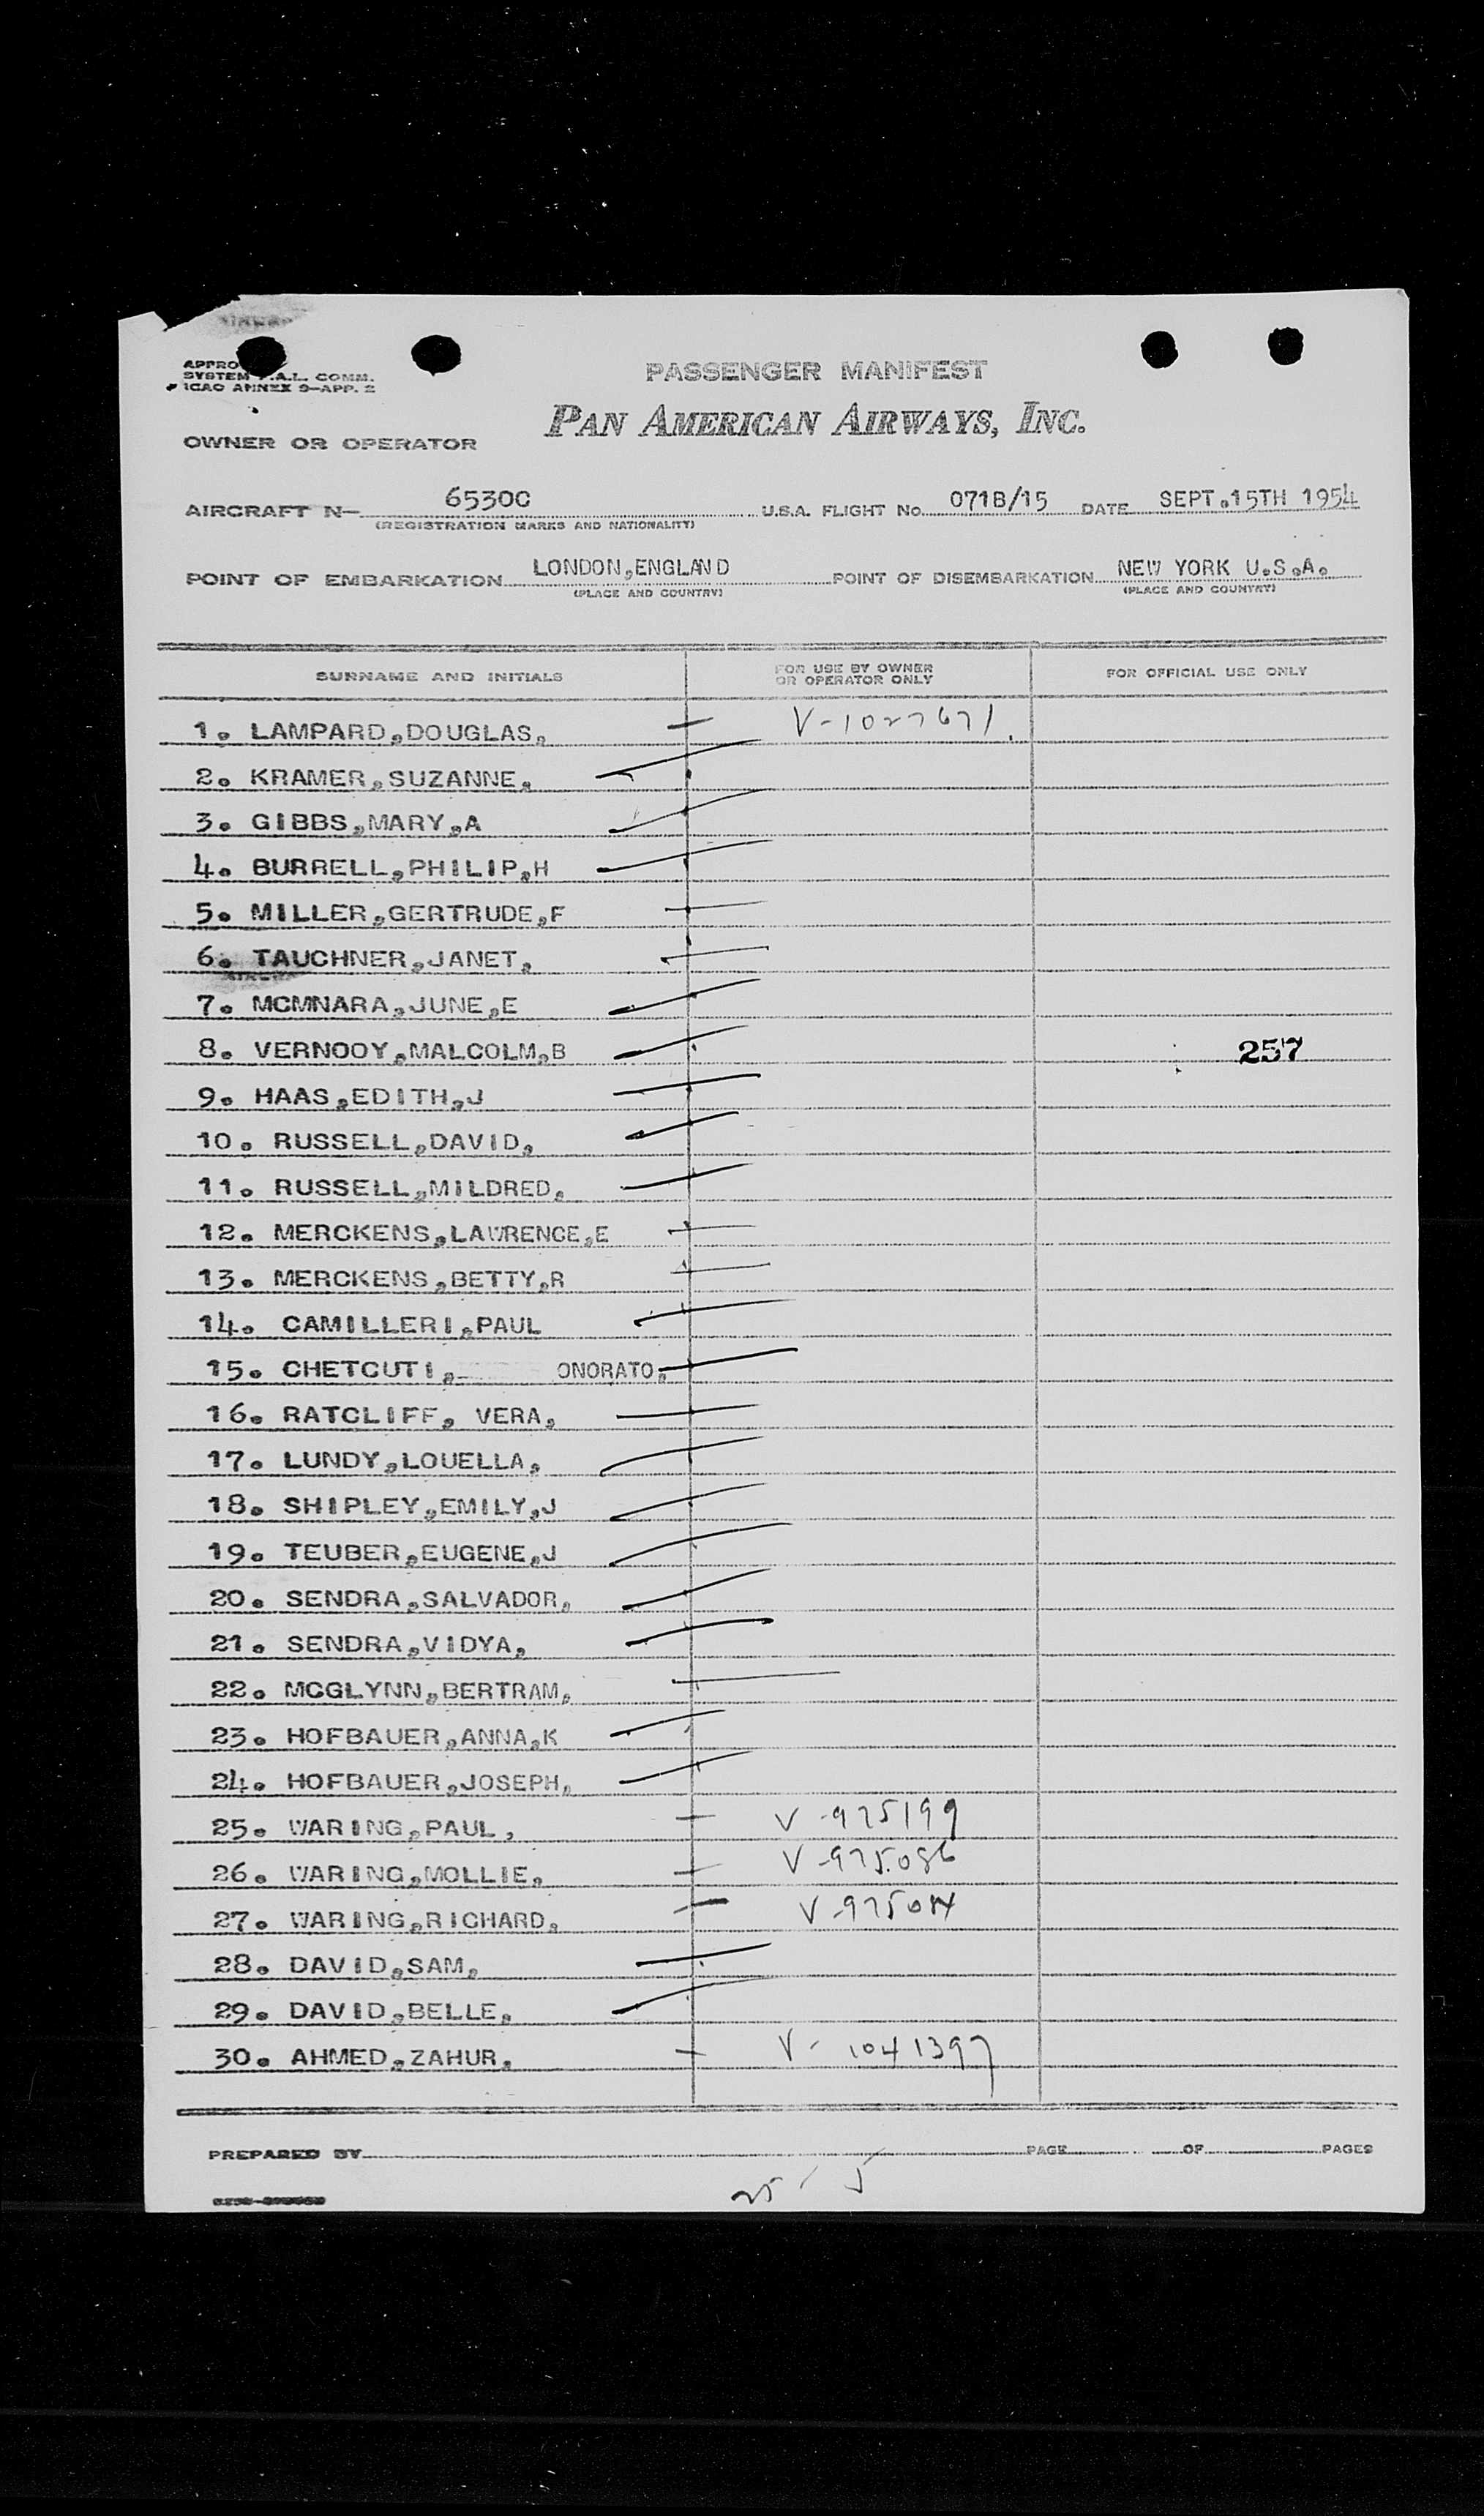 PASSENGER MANIFEST
SYSTEM F.A.L. COMM.
ICAO ANNEX 9—APP. 2
PAN AMERICAN AIRWAYS, INC.
OWNER OR OPERATOR
AIRCRAFT N— 6530C U.S.A. FLIGHT No. 071B/15 DATE SEPT.15TH 1954
(REGISTRATION MARKS AND NATIONALITY)
POINT OF EMBARKATION LONDON,ENGLAND POINT OF DISEMBARKATION NEW YORK U.S.A.
(PLACE AND COUNTRY) (PLACE AND COUNTRY)
SURNAME AND INITIALS FOR USE BY OWNER OR OPERATOR ONLY FOR OFFICIAL USE ONLY
1. LAMPARD,DOUGLAS, V-1027671.
2. KRAMER,SUZANNE,
3. GIBBS,MARY,A
4. BURRELL,PHILIP,H
5. MILLER,GERTRUDE,F
6. TAUCHNER,JANET,
7. MCMNARA,JUNE,E
8. VERNOOY,MALCOLM,B 257
9. HAAS,EDITH,J
10. RUSSELL,DAVID,
11. RUSSELL,MILDRED,
12. MERCKENS,LAWRENCE,E
13. MERCKENS,BETTY,R
14. CAMILLERI,PAUL
15. CHETCUTI, ONORATO,
16. RATCLIFF, VERA,
17. LUNDY,LOUELLA,
18. SHIPLEY,EMILY,J
19. TEUBER,EUGENE,J
20. SENDRA,SALVADOR,
21. SENDRA,VIDYA,
22. MCGLYNN,BERTRAM,
23. HOFBAUER,ANNA,K
24. HOFBAUER,JOSEPH,
25. WARING,PAUL, V-975199
26. WARING,MOLLIE, V-975086
27. WARING,RICHARD,
28. DAVID,SAM,
29. DAVID,BELLE,
30. AHMED,ZAHUR, V-1041397
PREPARED BY PAGE OF PAGES
25 / 5